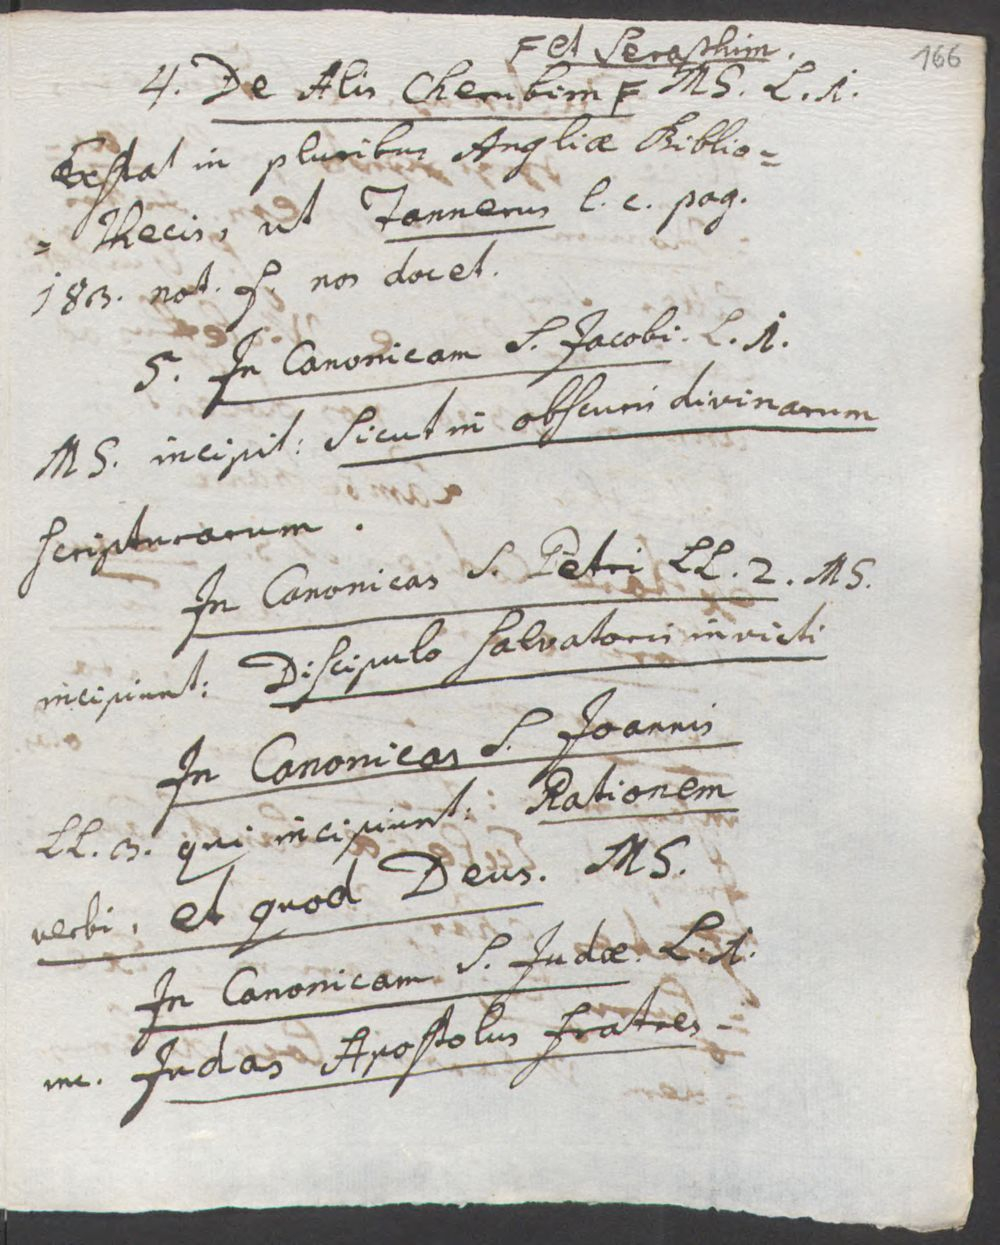 166
F et Seraphim.
4. De Alis Cherubim F MS. L. 1.
Exstat in pluribus Angliæ Biblio=
= thecis, ut Tannerus l. c. pag.
183. not. f. nos docet.
5. In Canonicam S. Jacobi. L. 1.
MS. incipit: Sicut in obscuris divinarum
scripturarum.
In Canonicas S. Petri LL. 2. MS.
incipiunt: Discipulo Salvatoris invicti
In Canonicas S. Joannis
LL. 3. qui incipiunt: Rationem
verbi, et quod Deus. MS.
In Canonicam S. Judæ. L. 1.
inc. Judas Apostolus fratres-